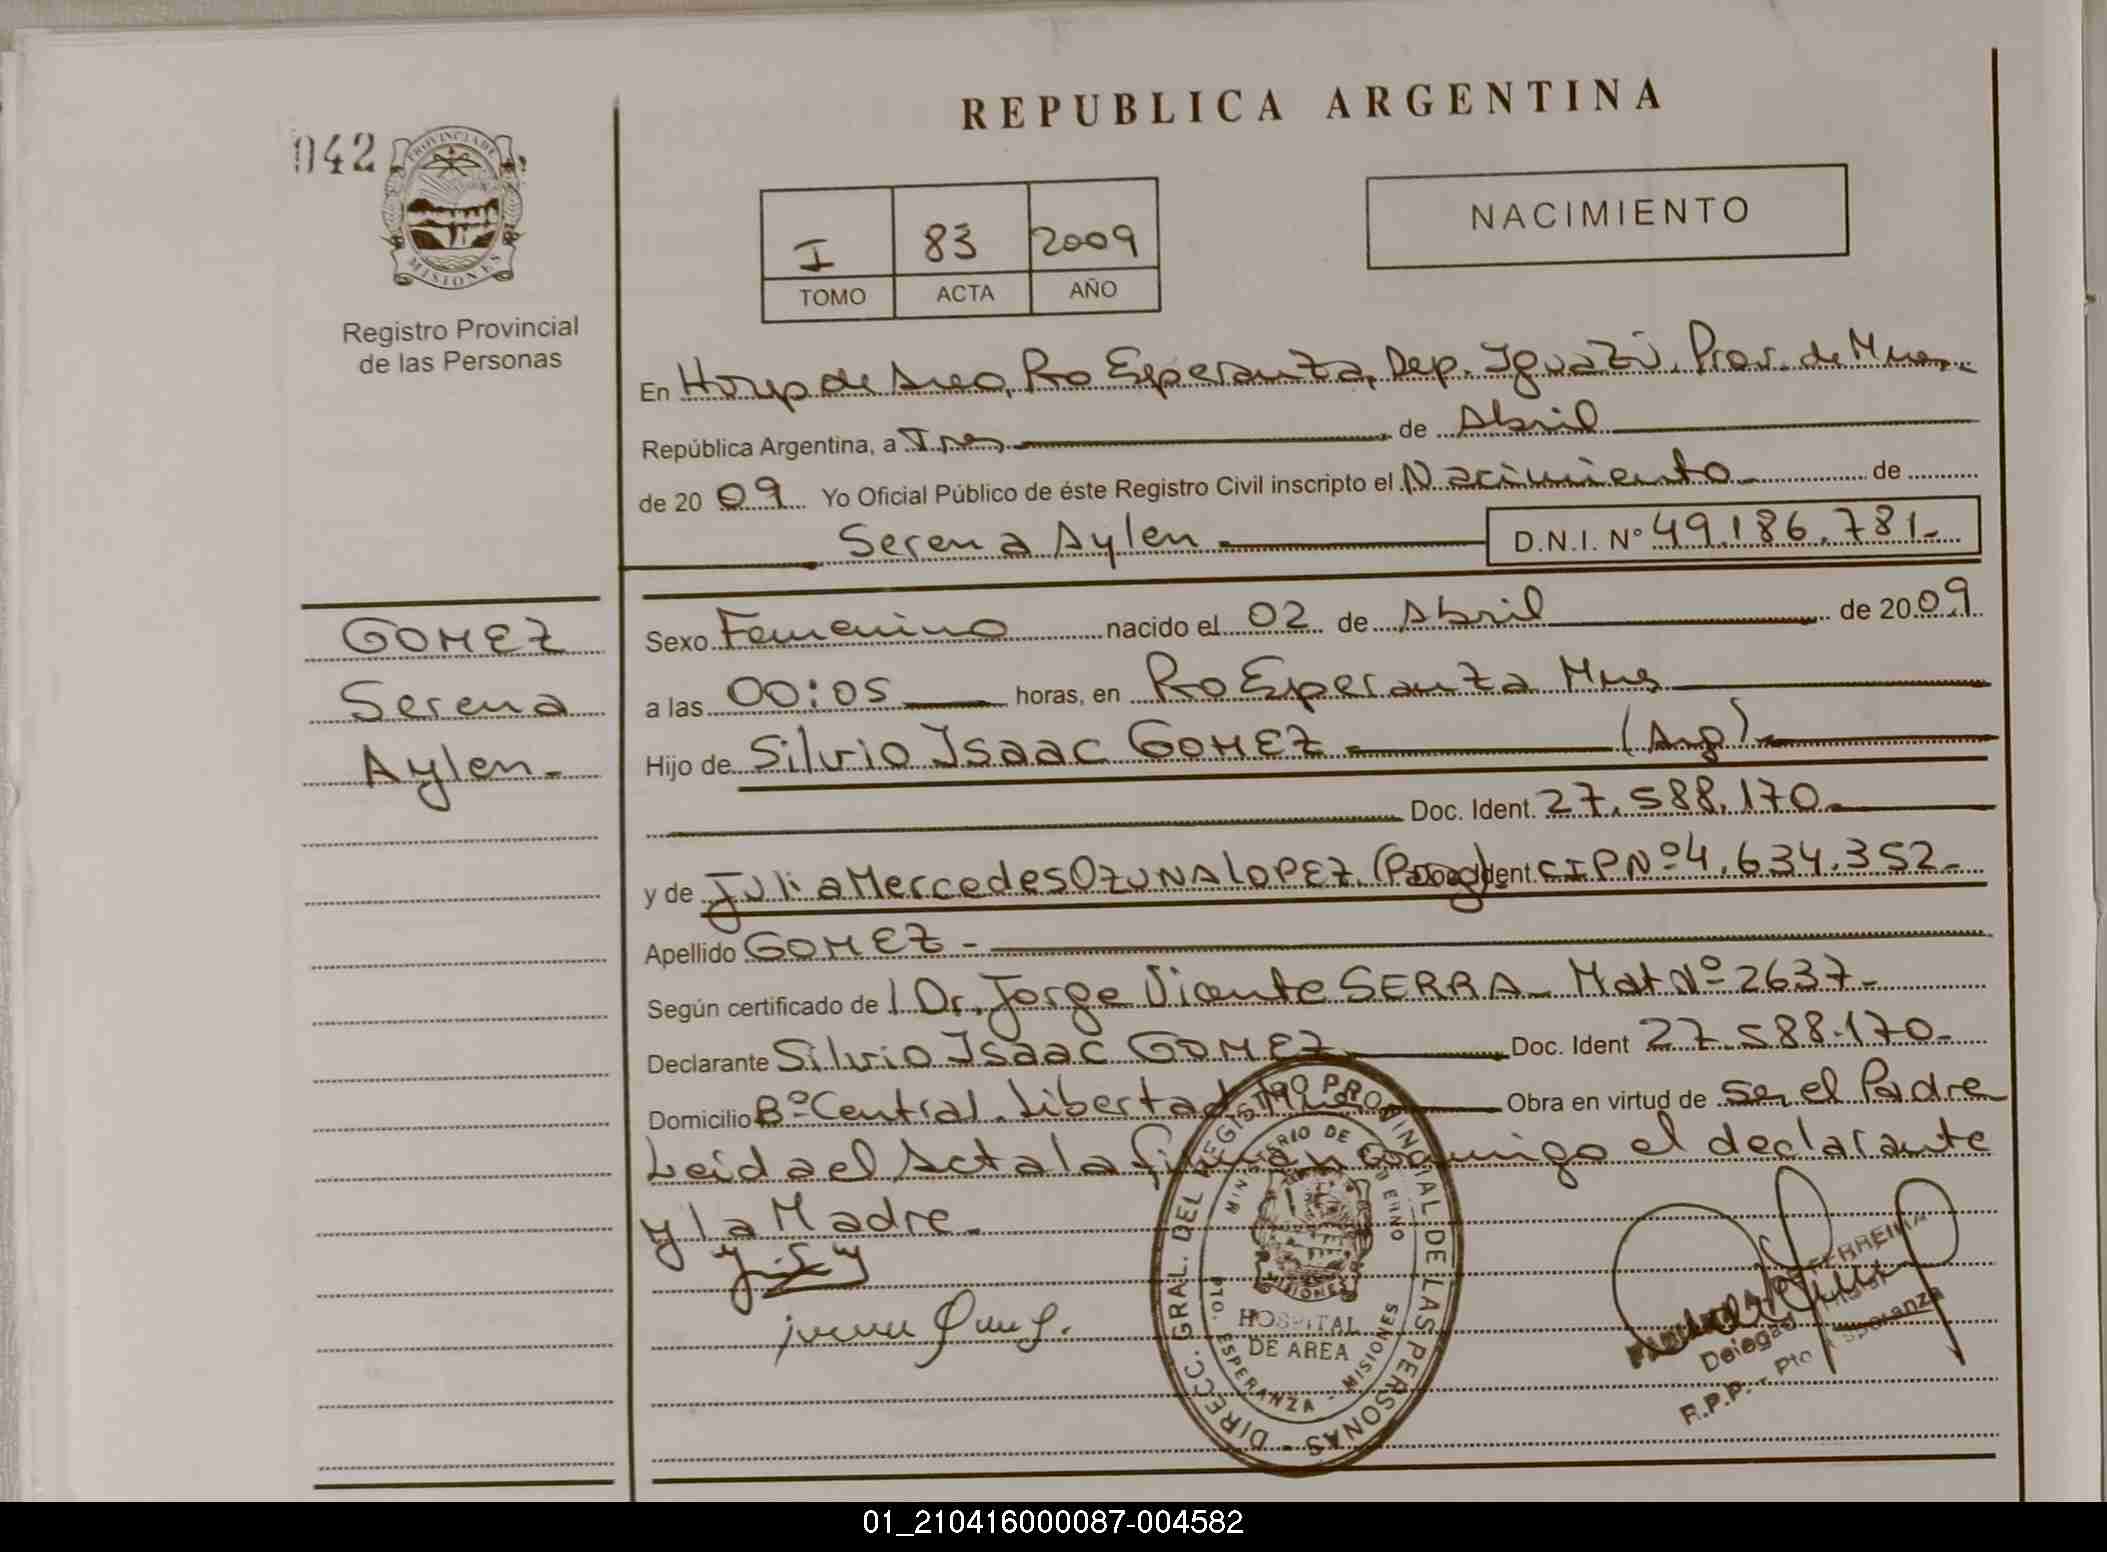 REPUBLICA ARGENTINA
042
PROVINCIA DE
MISIONES
Registro Provincial
de las Personas
I 83 2009
TOMO ACTA AÑO
NACIMIENTO
En Hosp de Area, Pto Esperanza, Dep. Iguazú. Prov. de Mnes
República Argentina, a Tres de Abril
de 2009 Yo Oficial Público de éste Registro Civil inscripto el Nacimiento de
Serena Aylen D.N.I. Nº 49.186.781-
GOMEZ
Serena
Aylen-
Sexo Femenino nacido el 02 de Abril de 2009
a las 00:05 horas, en Pto Esperanza Mnes
Hijo de Silvio Isaac GOMEZ- (Arg)-
Doc. Ident. 27.588.170-
y de Julia Mercedes OZUNA LOPEZ (Parag) Doc. Ident. CIP Nº 4.634.352-
Apellido GOMEZ-
Según certificado de l Dr. Jorge Vicente SERRA- Mat Nº 2637-
Declarante Silvio Isaac GOMEZ Doc. Ident 27.588.170-
Domicilio Bº Central. Libertad Obra en virtud de Ser el Padre
Leida el Acta la firman conmigo el declarante
y la Madre-
DIRECC. GRAL. DEL REGISTRO PROVINCIAL DE LAS PERSONAS
MINISTERIO DE GOBIERNO
MISIONES
HOSPITAL
DE AREA
PTO. ESPERANZA - MISIONES
FERREIRA
R.P.P. - Pto Esperanza
01_210416000087-004582